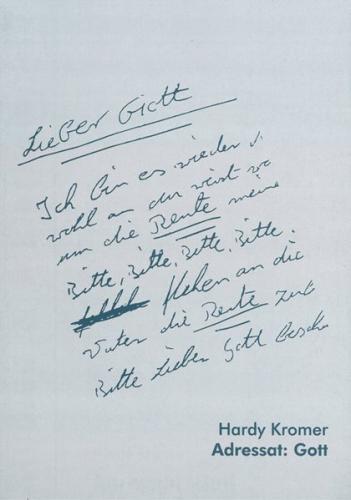 Lieber Gott
Ich bin es wieder
wohl an du wirst
um die Rente meine
Bitte, Bitte, Bitte, Bitte.
flehen an die
Vater die Rente
Bitte lieber Gott
Hardy Kromer
Adressat: Gott